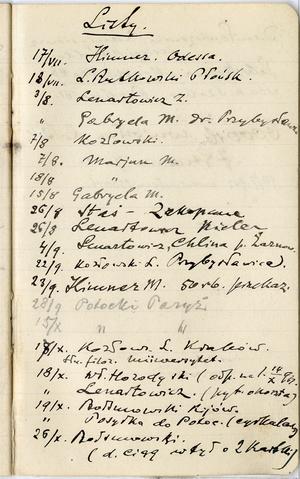 Listy.
17/VII. Himner. Odessa.
18/VII. L. Rutkowski Płońsk.
3/8 Lenartowicz Z.
" Gabryela M. dr. Przybysł
7/8 Kozłowski.
7/8. Marjan M.
18/8 "
15/8 Gabryela M.
26/8 Staś - Zakopane
26/8 Lenartowicz Kielce
4/9. Lenartowicz, Chlina p. Żarnow
22/9. Kozłowski L. Przybysławice.
23/9. Himner M. 50 rb. przekaz.
28/9 Potocki Paryż
15/X " "
17/X. Kozłow. L. Kraków.
Stu. filoz. Uniwersytet.
18/X. Wł. Horodyski (odp. na l. 14/X 9
" Lenartowicz. (pyt. o
19/X. Rozumowski Kijów.
" Posyłka do Potoc. (
26/X. Rozumowski.
(d. ciąg w tył o 2 kartki)